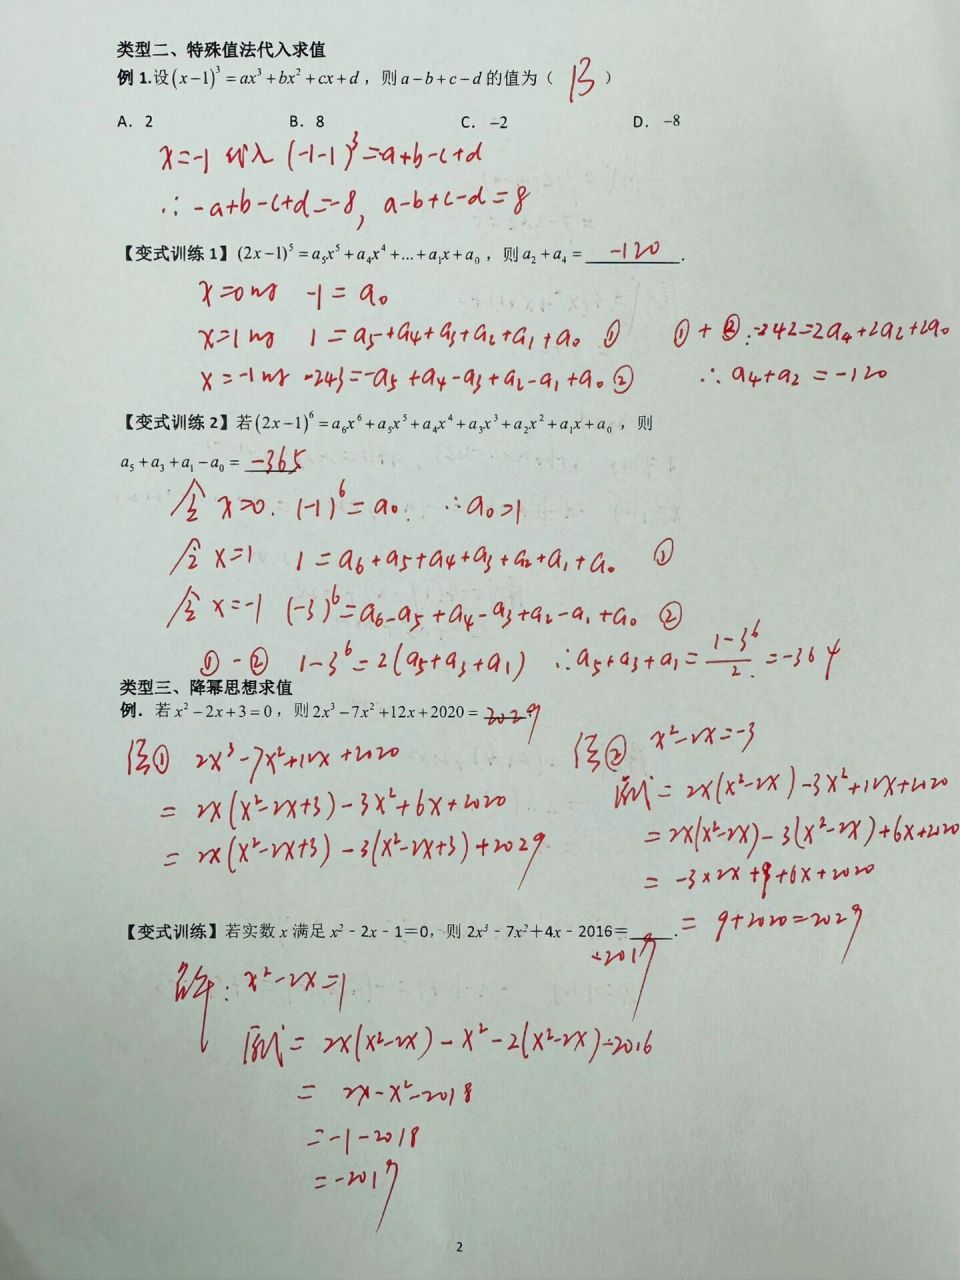 类型二、特殊值法代入求值
例 1.设(x-1)³=ax³+bx²+cx+d，则a-b+c-d的值为（ B ）
A. 2 B. 8 C. -2 D. -8
x=-1 代入 (-1-1)³=-a+b-c+d
∴ -a+b-c+d=-8, a-b+c-d=8
【变式训练 1】(2x-1)⁵=a₅x⁵+a₄x⁴+...+a₁x+a₀，则a₂+a₄= -120 .
x=0时 -1=a₀
x=1时 1=a₅+a₄+a₃+a₂+a₁+a₀ ① ①+②:-242=2a₄+2a₂+2a₀
x=-1时 -243=-a₅+a₄-a₃+a₂-a₁+a₀ ② ∴a₄+a₂=-120
【变式训练 2】若(2x-1)⁶=a₆x⁶+a₅x⁵+a₄x⁴+a₃x³+a₂x²+a₁x+a₀，则
a₅+a₃+a₁-a₀= -365
令 x=0. (-1)⁶=a₀. ∴a₀=1
令 x=1 1=a₆+a₅+a₄+a₃+a₂+a₁+a₀ ①
令 x=-1 (-3)⁶=a₆-a₅+a₄-a₃+a₂-a₁+a₀ ②
①-② 1-3⁶=2(a₅+a₃+a₁) ∴a₅+a₃+a₁=(1-3⁶)/2=-364
类型三、降幂思想求值
例. 若x²-2x+3=0，则2x³-7x²+12x+2020= 2029
法① 2x³-7x²+12x+2020
=2x(x²-2x+3)-3x²+6x+2020
=2x(x²-2x+3)-3(x²-2x+3)+2029
法② x²-2x=-3
原式=2x(x²-2x)-3x²+12x+2020
=2x(x²-2x)-3(x²-2x)+6x+2020
=-3×2x+9+6x+2020
=9+2020=2029
【变式训练】若实数 x 满足 x²-2x-1=0，则 2x³-7x²+4x-2016=____.
-2019
解: x²-2x=1
原式=2x(x²-2x)-x²-2(x²-2x)-2016
=2x-x²-2018
=-1-2018
=-2019
2